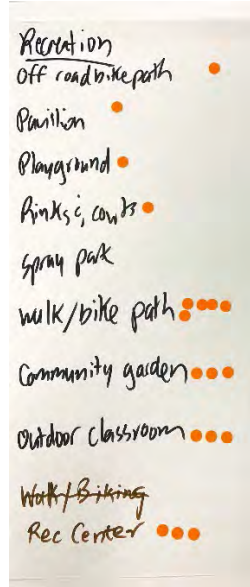 Recreation
Off road bike path
Pavilion
Playground
Rinks & courts
Spray park
Walk/bike path
Community garden
Outdoor classroom
Walk/Biking
Rec Center